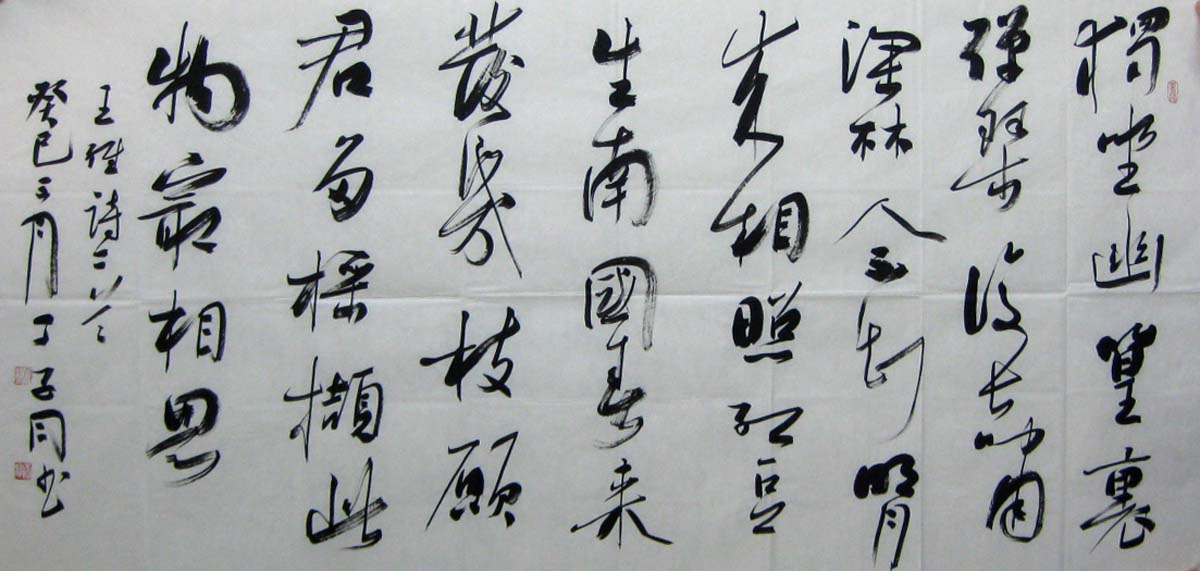 獨坐幽篁裏
彈琴復長嘯
深林人不知明月
来相照紅豆
生南國春来
發幾枝願
君多採擷此
物最相思
王維詩二首
癸巳月子同书